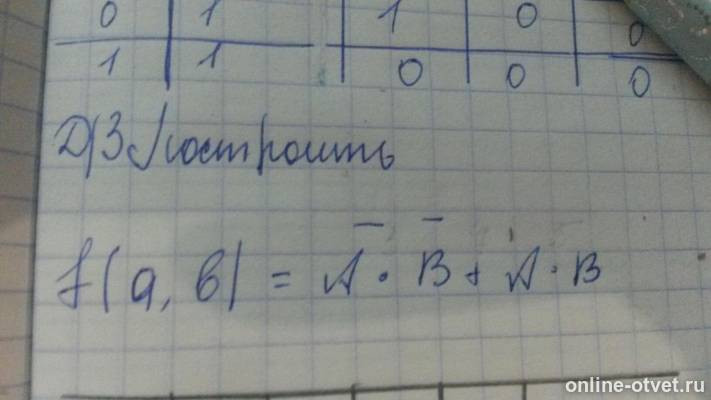 0 1 1 0 0
1 1 0 0 0
Д/З Построить
f(a, b) = A̅ · B̅ + A · B
online-otvet.ru